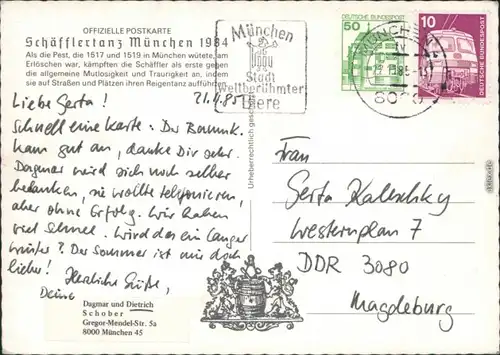 OFFIZIELLE POSTKARTE
Schäfflertanz München 1984
Als die Pest, die 1517 und 1519 in München wütete, am
Erlöschen war, kämpften die Schäffler als erste gegen
die allgemeine Mutlosigkeit und Traurigkeit an, indem
sie auf Straßen und Plätzen ihren Reigentanz aufführ
21.1.85
Liebe Gerta!
Schnell eine Karte: Der Baumk.
kam gut an, danke Dir sehr.
Dagmar wird sich noch selber
bedanken, sie wollte telefonieren,
aber ohne Erfolg. Wir haben
viel Schnee. Wird das ein langer
Winter? Der Sommer ist mir doch
lieber! Herzliche Grüße,
Deine
Dagmar und Dietrich
Schober
Gregor-Mendel-Str. 5a
8000 München 45
München
Stadt
Weltberühmter
Biere
Urheberrechtlich
50
DEUTSCHE BUNDESPOST
10
DEUTSCHE BUNDESPOST
MÜNCHEN
Frau
Gerta
Westernplan 7
DDR 3080
Magdeburg